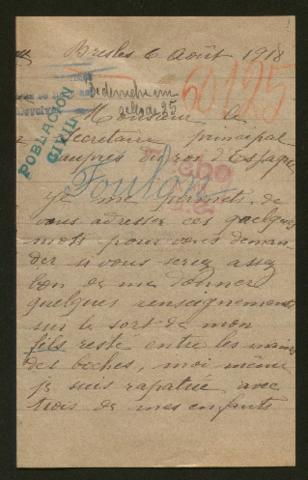 Bresles 6 Août 1918
60125
POBLACION
CIVIL
25
Monsieur le
secretaire principal
auprès du roi d'Espagne
Foulon
je me permets de
vous adresser ces quelques
mots pour vous deman
der si vous seriez assez
bon de me donner
quelques renseignements
sur le sort de mon
fils reste entre les mains
des boches, moi même
je suis rapatrié avec
trois de mes enfants